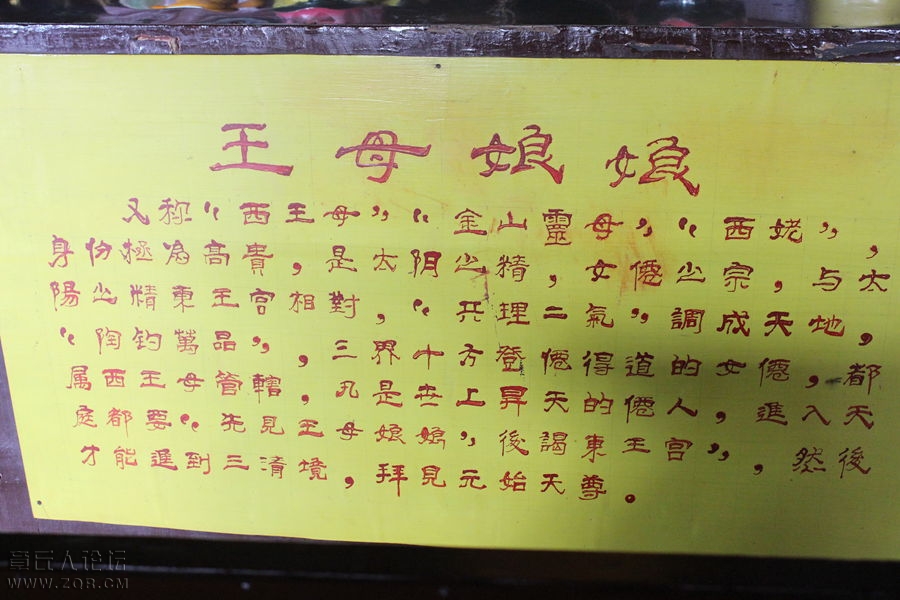 王母娘娘
又称“西王母”“金山靈母”“西姥”，
身份極為高貴，是太阴之精，女僊之宗，与太
陽之精東王宫相對，“共理二氣”調成天地，
“陶钧萬品”，三界十方登僊得道的女僊，都
属西王母管轄，凡是世上昇天的僊人，進入天
庭都要“先見王母娘娘”，後謁東王宫”，然後
才能進到三清境，拜見元始天尊。
章丘人论坛
WWW.ZQR.CM